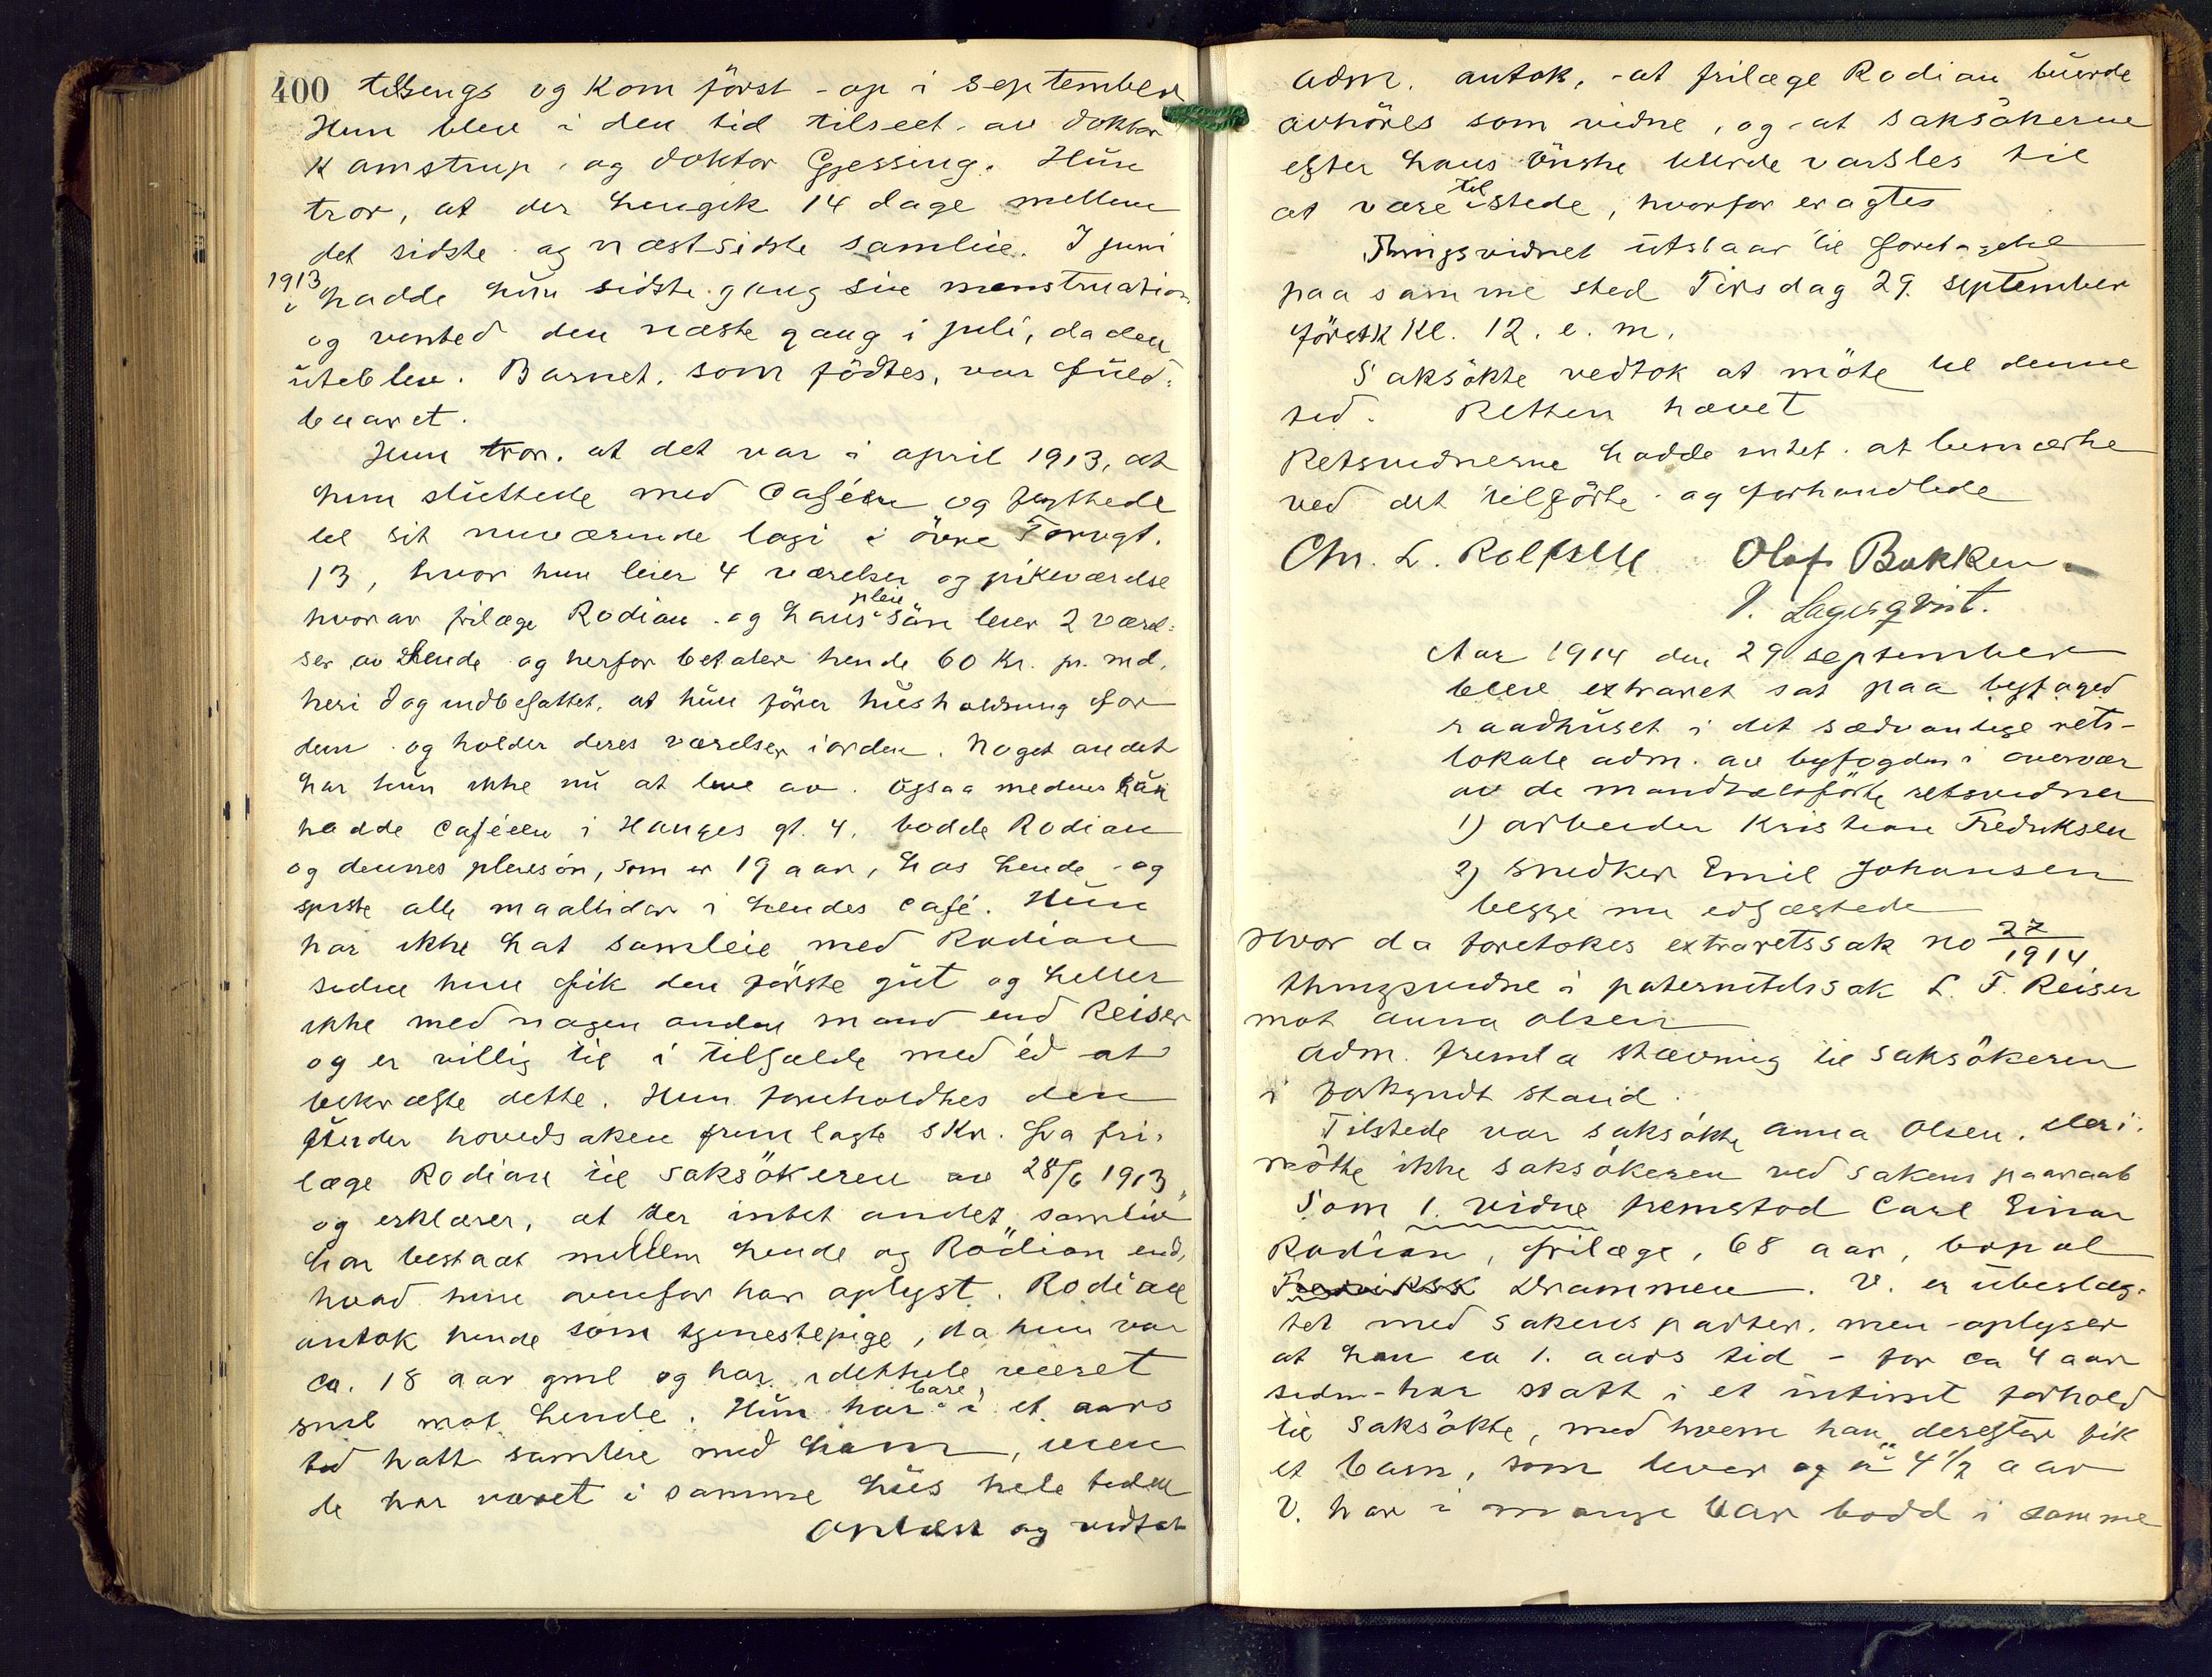 400 tilsengs og kom först - op i september
Hun blev i den tid tilseet av doktor
Kamstrup og doktor Gjessing. Hun
tror, at der hengik 14 dage mellem
det sidste og næstsidste samleie. I juni
1913
hadde hun sidste gang sin menstruation
og vented den næste gang i juli, da den
uteblev. Barnet, som födtes, var fuld-
baaret.
Hun tror, at det var i april 1913, at
hun sluttede med caféen og flyttede
til sit nuværende logi i övre Torvgt.
13, hvor hun leier 4 værelser og pikeværelse
hvorav frilæge Rodian og hans plei sön leier 2 værel-
ser av hende og herfor betaler hende 60 kr. pr. md.
heri dog indbefattet, at hun förer husholdning for
dem og holder deres værelser i orden. Noget andet
har hun ikke nu at leve av. Ogsaa medens hun
hadde caféen i Hauges gt. 4, bodde Rodian
og dennes pleiesön, som er 19 aar, hos hende og
spiste alle maaltider i hendes café. Hun
har ikke hat samleie med Rodian
siden hun fik den förste gut og heller
ikke med nogen anden mand end Reiser
og er villig til i tilfælde med ed at
bekræfte dette. Hun foreholdtes den
under hovedsaken fremlagte skr. fra fri-
læge Rodian til saksökeren av 28/6 1913,
og erklærer, at der intet andet "samliv"
har bestaat mellem hende og Rodian end,
hvad hun ovenfor har oplyst. Rodian
antok hende som tjenestepige, da hun var
ca. 18 aar gml og har i det hele været
snil mot hende. Hun har bare i et aars
tid hatt samleie med ham, men
de har været i samme hus hele tiden
Oplæst og vedtat
Adm. antok, at frilæge Rodian burde
avhöres som vidne, og at saksökeren
efter hans önske burde varsles til
at være tilstede, hvorfor eragtes
Thingsvidnet utstaar til foretagelse
paa samme sted Tirsdag 29. september
förstk Kl. 12. e. m.
Saksökte vedtok at möte til denne
tid. Retten hævet
Retsvidnerne hadde intet at bemærke
ved det tilförte og forhandlede
Chr. L. Rolfsen Olaf Bakken
V. Lagerqvist.
Aar 1914 den 29 september
blev extraret sat paa byfoged
raadhuset i det sædvanlige rets-
lokale adm. av byfogden i overvær
av de mandtalsförte retsvidner
1) arbeider Kristian Fredriksen
2) snedker Emil Johansen
begge nu edfæstede
Hvor da foretokes extraretssak no 27/1914
thingsvidne i paternitetssak L. F. Reiser
mot Anna Olsen
Adm. fremla stævning til saksökeren
i forkyndt stand.
Tilstede var saksökte Anna Olsen. Deri-
mötte ikke saksökeren ved sakens paaraab
Som 1. vidne fremstod Carl Einar
Rodian, frilæge, 68 aar, bopæl
Drammen. V. er ubeslæg-
tet med sakens parter, men oplyser
at han ca 1. aars tid - for ca 4 aar
siden - har staatt i et intimt forhold
til saksökte, med hvem han derefter fik
et barn, som lever og er 4 1/2 aar
V. har i mange aar bodd i samme